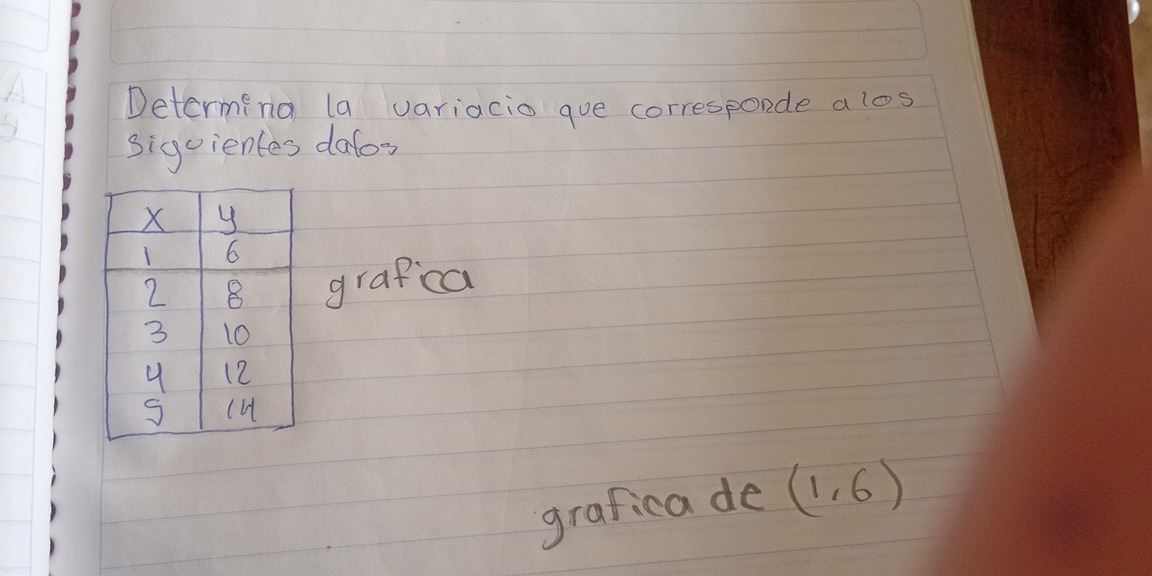 Determina la variacio que corresponde a los
siguientes datos
x y
1 6
2 8
3 10
4 12
5 14
grafica
grafica de (1,6)